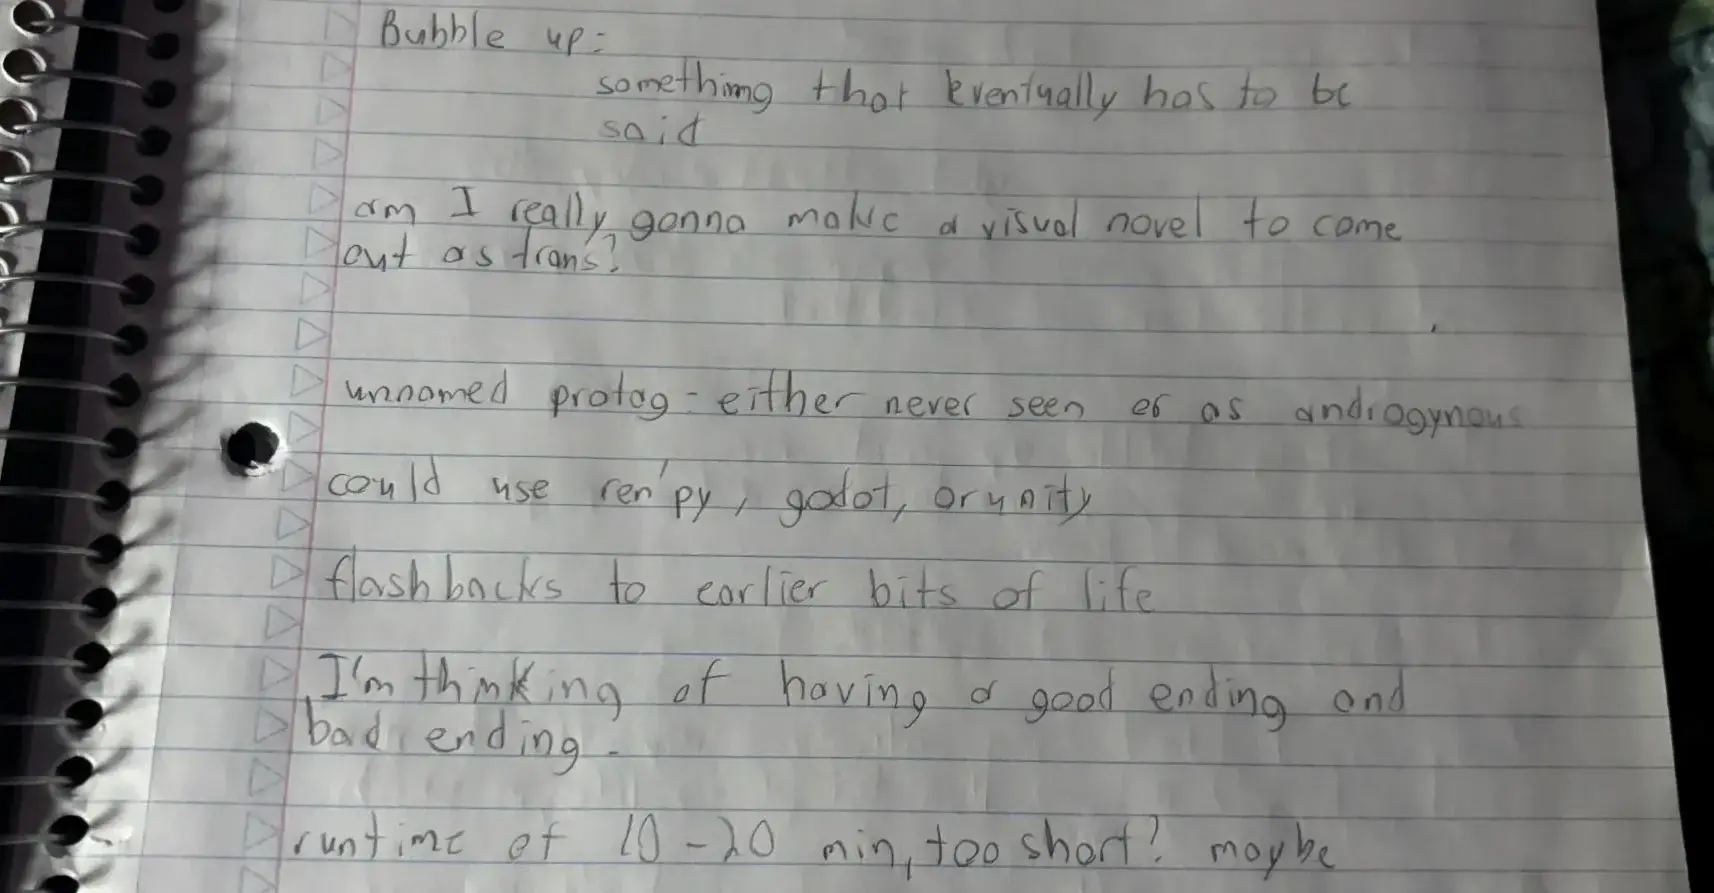 Bubble up:
something that eventually has to be
said
am I really gonna make a visual novel to come
out as trans?
unnamed protag - either never seen or as androgynous
could use ren'py, godot, or unity
flashbacks to earlier bits of life
I'm thinking of having a good ending and
bad ending.
runtime of 10-20 min, too short? maybe